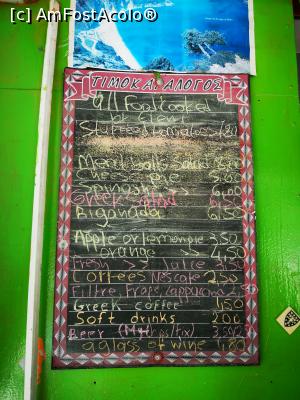 (c) AmFostAcolo®
ΤΙΜΟΚΑΤΑΛΟΓΟΣ
All Food cooked
by Eleni
Stuffed tomatoes 7,80
Meat balls Salad
Cheese pie 5,00
6,00
Greek salad 6,50
Biganada 6,50
Apple or lemon pie 3,50
orange 4,50
Fresh juice 3,50
Coffees Nescafe 2,50
Filtre frape/
Greek coffee 1,50
Soft drinks 2,00
Beer (
a glass of wine 1,80